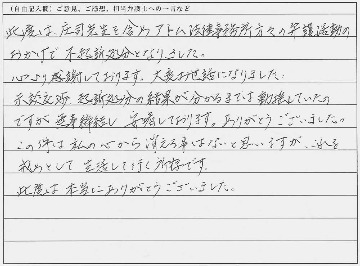 (自由記入欄) ご意見、ご感想、担当弁護士への一言など
此度は、庄司先生を含めアトム法律事務所方々の弁護活動の
おかげで不起訴処分となりました。
心より感謝しております。大変お世話になりました。
示談交渉、起訴処分の結果が分かるまでは動揺していた
ですが無事締結し安堵しております。ありがとうございました。
この件は私の心から消える事はないと思いますが、
戒めとして生活して行く所存です。
此度は本当にありがとうございました。